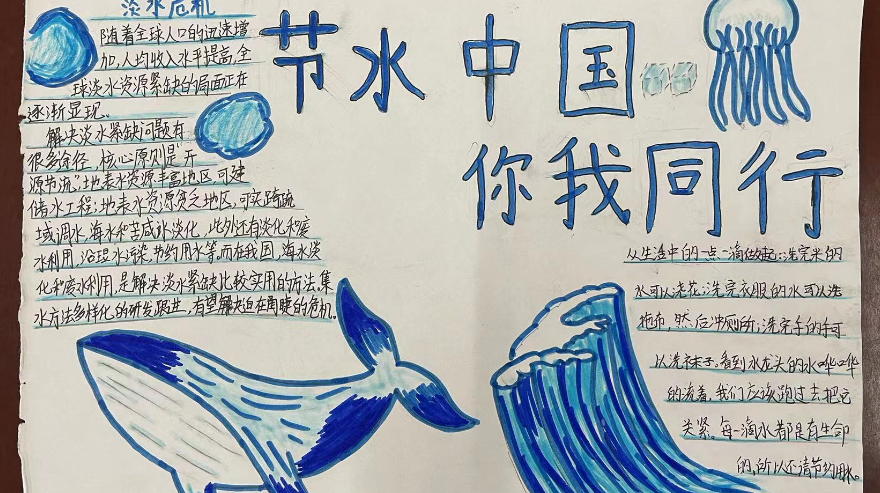 淡水危机
随着全球人口的迅速增
加,人均收入水平提高,全
球淡水资源紧缺的局面正在
逐渐显现。
解决淡水紧缺问题有
很多途径,核心原则是“开
源节流”;地表水资源丰富地区,可建
储水工程;地表水资源贫乏地区,可实跨疏
域调水,海水和苦咸水淡化,此外还有淡化和废
水利用,治理水污染,节约用水等,而在我国,海水淡
化和废水利用,是解决淡水紧缺比较实用的方法,集
水方法多样化的研发跟进,有望解决迫在眉睫的危机。
节水中国
你我同行
从生活中的一点一滴做起:洗完米的
水可以浇花;洗完衣服的水可以洗
拖布,然后冲厕所;洗完手的水可
以洗袜子。看到水龙头的水哗哗
的流着,我们应该跑过去把它
关紧。每一滴水都是有生命
的,所以还请节约用水。